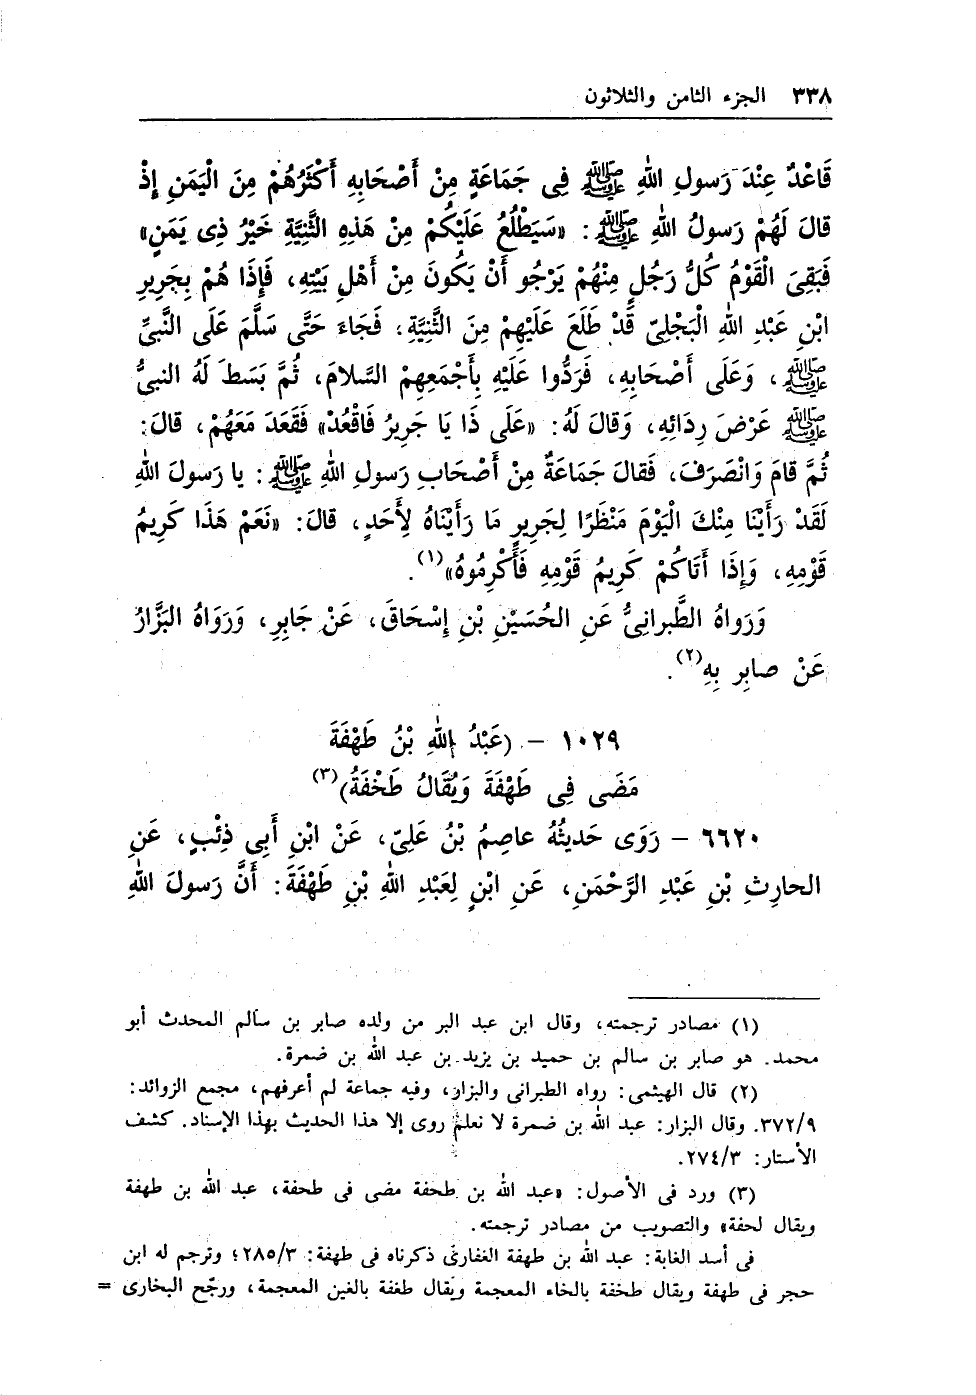 ٣٣٨ الجزء الثامن والثلاثون
قَاعْدٌ عِنْدَ رَسولِ اللهِ ﷺ فِى جَمَاعَةٍ مِنْ أَصْحَابِهِ أَكْثَرُهُمْ مِنَ الْيَمَنِ إِذْ
قالَ لَهُمْ رَسولُ اللهِ ﷺ : «سَيَطْلُعُ عَلَيْكُمْ مِنْ هَذِهِ الثَّنِيَّةِ خَيْرُ ذِى يَمَنٍ»
فَبَقِىَ الْقَوْمُ كُلُّ رَجُلٍ مِنْهُمْ يَرْجُو أَنْ يَكُونَ مِنْ أَهْلِ بَيْتِهِ، فَإِذَا هُمْ بِجَرِيرِ
ابْنِ عَبْدِ اللهِ الْبَجْلِىّ قَدْ طَلَعَ عَلَيْهِمْ مِنَ الثَّنِيَّةِ، فَجَاءَ حَتَّى سَلَّمَ عَلَى النَّبىِّ
ﷺ ، وَعَلَى أَصْحَابِهِ، فَرَدُّوا عَلَيْهِ بِأَجْمَعِهِمْ السَّلامَ، ثُمَّ بَسَطَ لَهُ النبىُّ
ﷺ عَرْضَ رِدَائِهِ، وَقالَ لَهُ: «عَلَى ذَا يَا جَرِيرُ فَاقْعُدْ» فَقَعَدَ مَعَهُمْ، قالَ:
ثُمَّ قامَ وَانْصَرَفَ، فَقالَ جَمَاعَةٌ مِنْ أَصْحَابِ رَسولِ اللهِ ﷺ : يا رَسولَ اللهِ
لَقَدْ رَأَيْنَا مِنْكَ الْيَوْمَ مَنْظَرًا لِجَرِيرٍ مَا رَأَيْنَاهُ لِأَحَدٍ، قالَ: «نَعَمْ هَذَا كَرِيمُ
قَوْمِهِ، وَإِذَا أَتَاكُمْ كَرِيمُ قَوْمِهِ فَأَكْرِمُوهُ»(١).
وَرَواهُ الطَّبرانِىُّ عَنِ الحُسَيْنِ بْنِ إِسْحَاقَ، عَنْ جَابِرِ، وَرَوَاهُ البَزَّارُ
عَنْ صابِر بِهِ(٢).
١٠٢٩ - (عَبْدُ اللهِ بْنُ طَهْفَةَ
مَضَى فِى طَهْفَةَ وَيُقَالُ طَخْفَةُ)(٣)
٦٦٢٠ - رَوَى حَديثُهُ عاصِمُ بْنُ عَلِىّ، عَنْ ابْنِ أَبِى ذِئْبٍ، عَنِ
الحارِثِ بْنِ عَبْدِ الرَّحْمَنِ، عَنِ ابْنٍ لِعَبْدِ اللهِ بْنِ طَهْفَةَ: أَنَّ رَسولَ اللهِ
(١) مصادر ترجمته، وقال ابن عبد البر من ولده صابر بن سالم المحدث أبو
محمد. هو صابر بن سالم بن حميد بن يزيد بن عبد الله بن ضمرة.
(٢) قال الهيثمى: رواه الطبرانى والبزار، وفيه جماعة لم أعرفهم، مجمع الزوائد:
٣٧٢/٩. وقال البزار: عبد الله بن ضمرة لا نعلم روى إلا هذا الحديث بهذا الإسناد. كشف
الأستار: ٢٧٤/٣.
(٣) ورد فى الأصول: «عبد الله بن طحفة مضى فى طحفة، عبد الله بن طهفة
ويقال لحفة» والتصويب من مصادر ترجمته.
فى أسد الغابة: عبد الله بن طهفة الغفارى ذكرناه فى طهفة: ٢٨٥/٣؛ وترجم له ابن
حجر فى طهفة ويقال طخفة بالخاء المعجمة ويقال طغفة بالغين المعجمة، ورجّح البخارى =